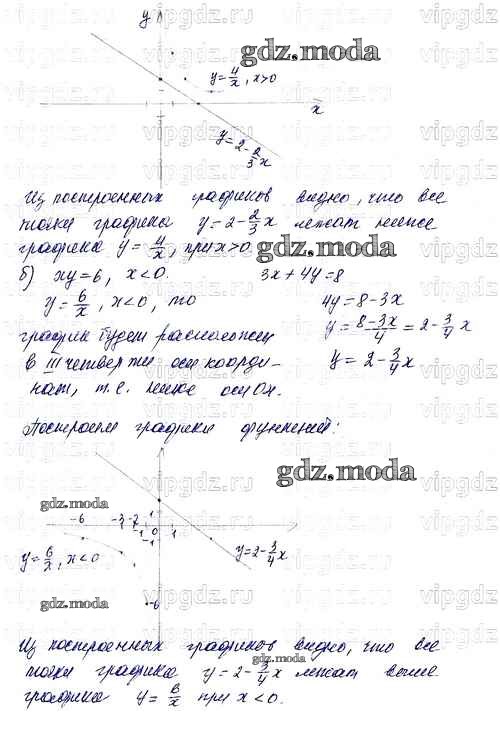 y
y = 4/x, x>0
x
y = 2 - 2/3 x
Из построенных графиков видно, что все
точки графика y = 2 - 2/3 x лежат ниже
графика y = 4/x, при x>0.
б) xy = 6, x<0. 3x + 4y = 8
y = 6/x, x<0, то 4y = 8 - 3x
график будет расположен y = 8-3x/4 = 2 - 3/4 x
в III четверти оси коорди- y = 2 - 3/4 x
нат, т.е. ниже оси Ox.
Построим графики функций:
-6 -3 -2 -1 0 1
1
-1
y = 6/x, x<0
y = 2 - 3/4 x
-6
Из построенных графиков видно, что все
точки графика y = 2 - 3/4 x лежат выше
графика y = 6/x при x<0.
gdz.moda
gdz.moda
gdz.moda
gdz.moda
gdz.moda
gdz.moda
vipgdz.ru